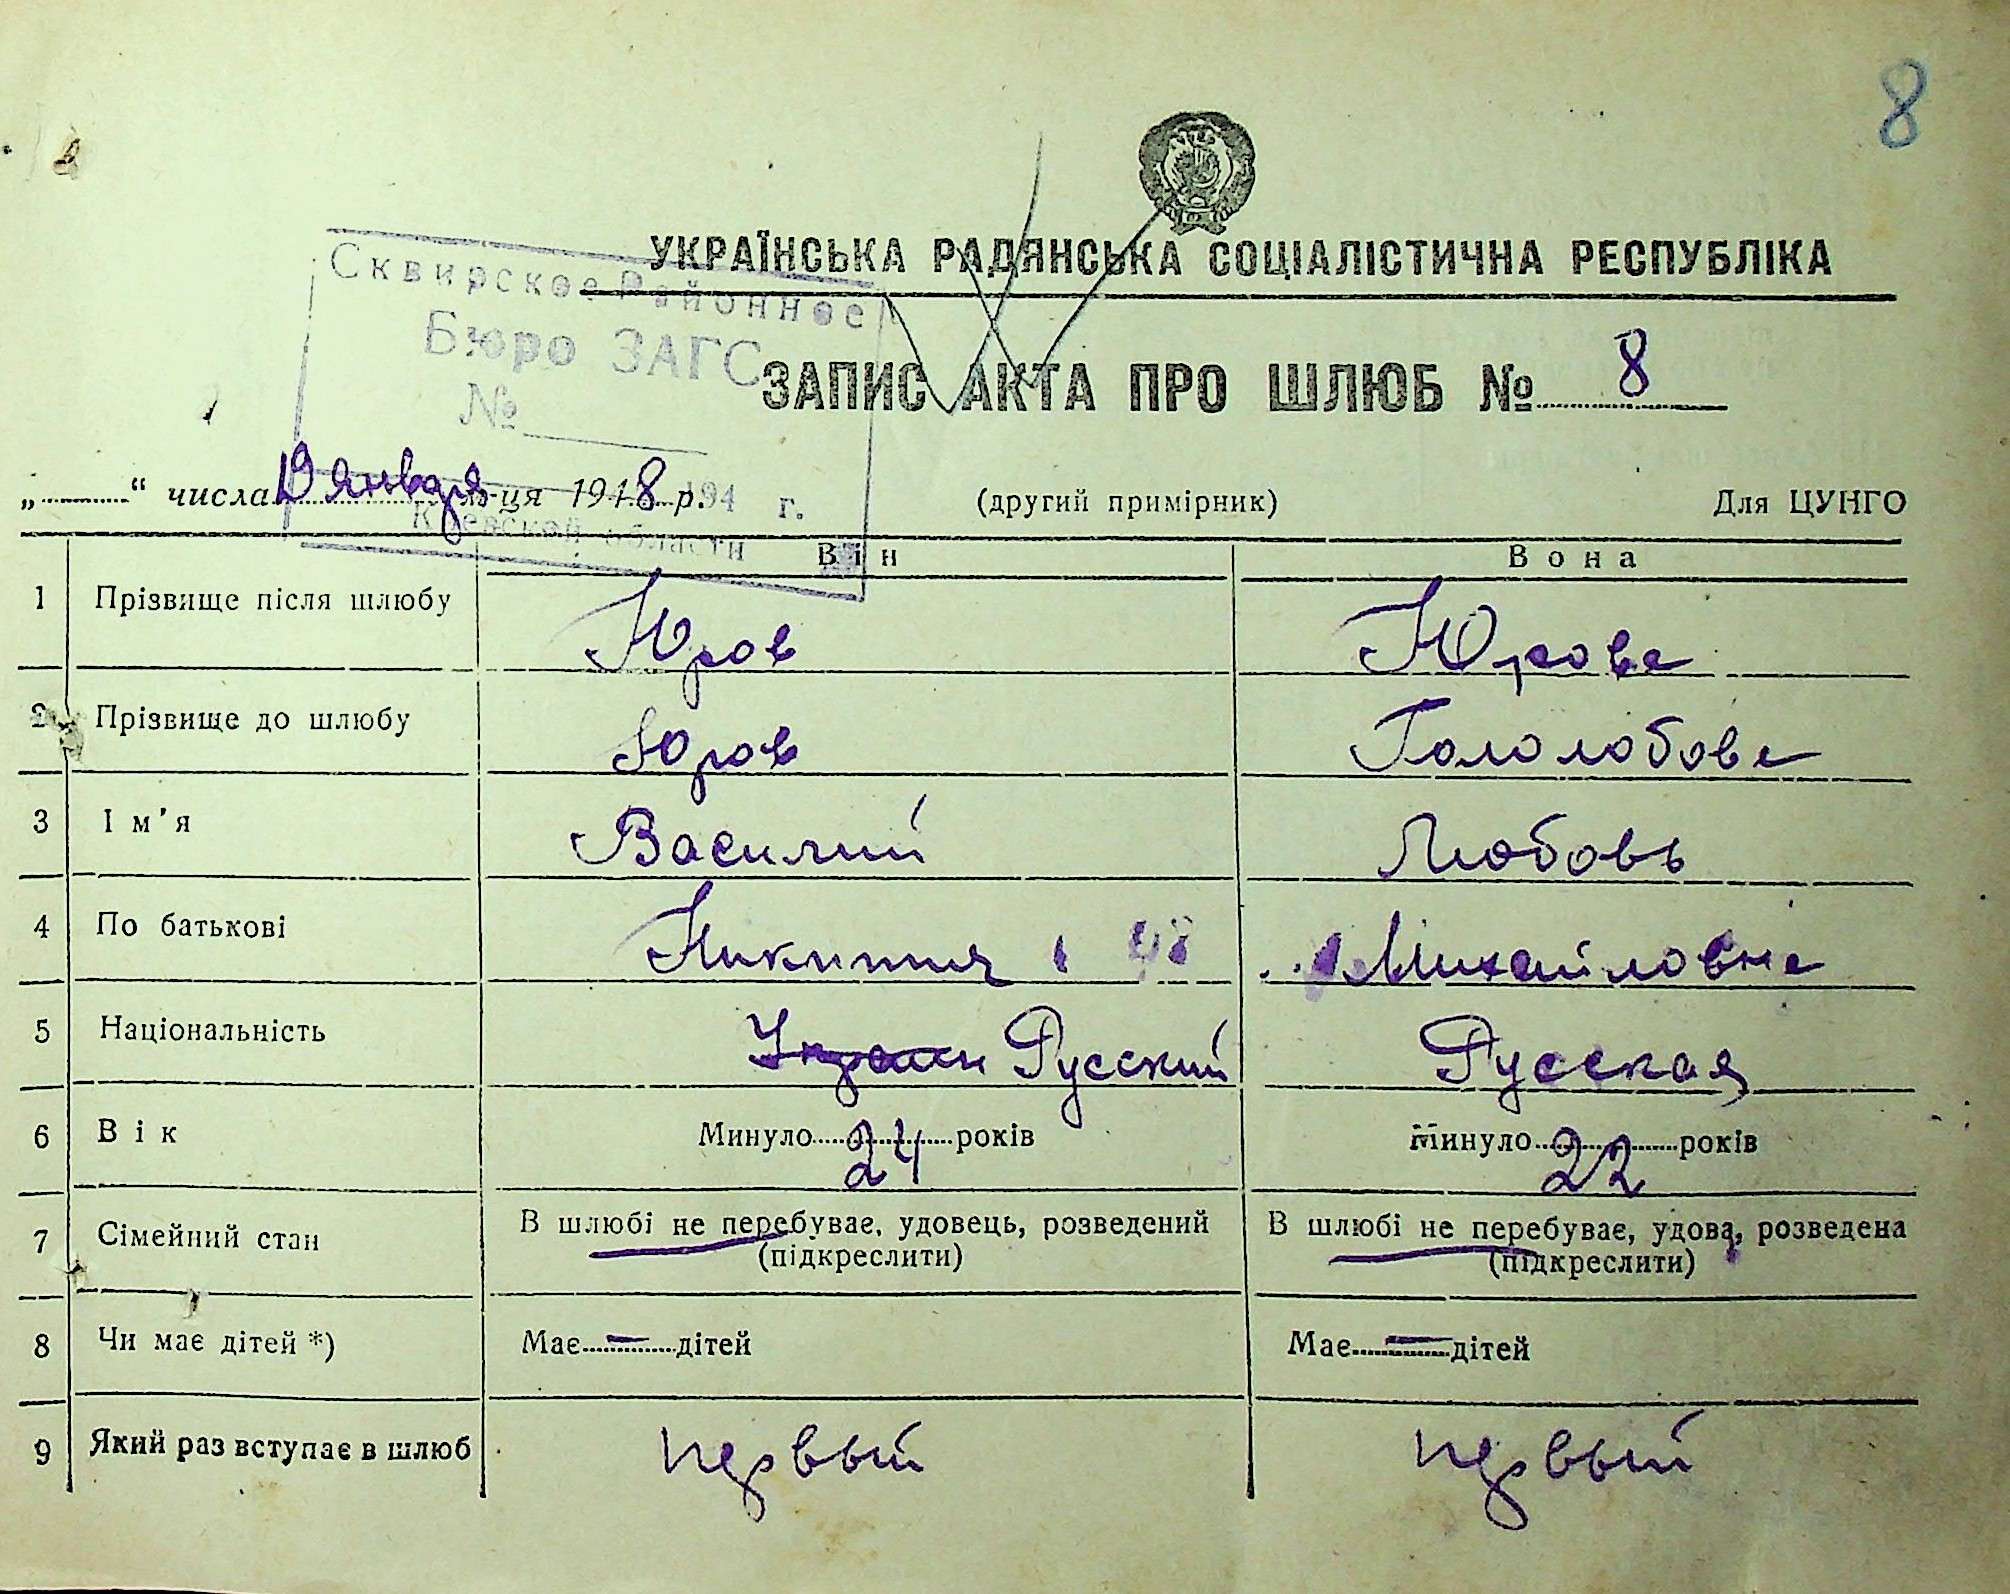 8
УКРАЇНСЬКА РАДЯНСЬКА СОЦІАЛІСТИЧНА РЕСПУБЛІКА
Сквирское Районное
Бюро ЗАГС
№
194 г.
Киевской области
ЗАПИС АКТА ПРО ШЛЮБ № 8
„ “ числа 19 января м-ця 1948 р. (другий примірник) Для ЦУНГО
Він Вона
1 Прізвище після шлюбу Юров Юрова
2 Прізвище до шлюбу Юров Гололобова
3 Ім’я Василий Любовь
4 По батькові Никитич Михайловна
5 Національність Украин Русский Русская
6 Вік Минуло 24 років Минуло 22 років
7 Сімейний стан В шлюбі не перебуває, удовець, розведений (підкреслити) В шлюбі не перебуває, удова, розведена (підкреслити)
8 Чи має дітей *) Має — дітей Має — дітей
9 Який раз вступає в шлюб первый первый